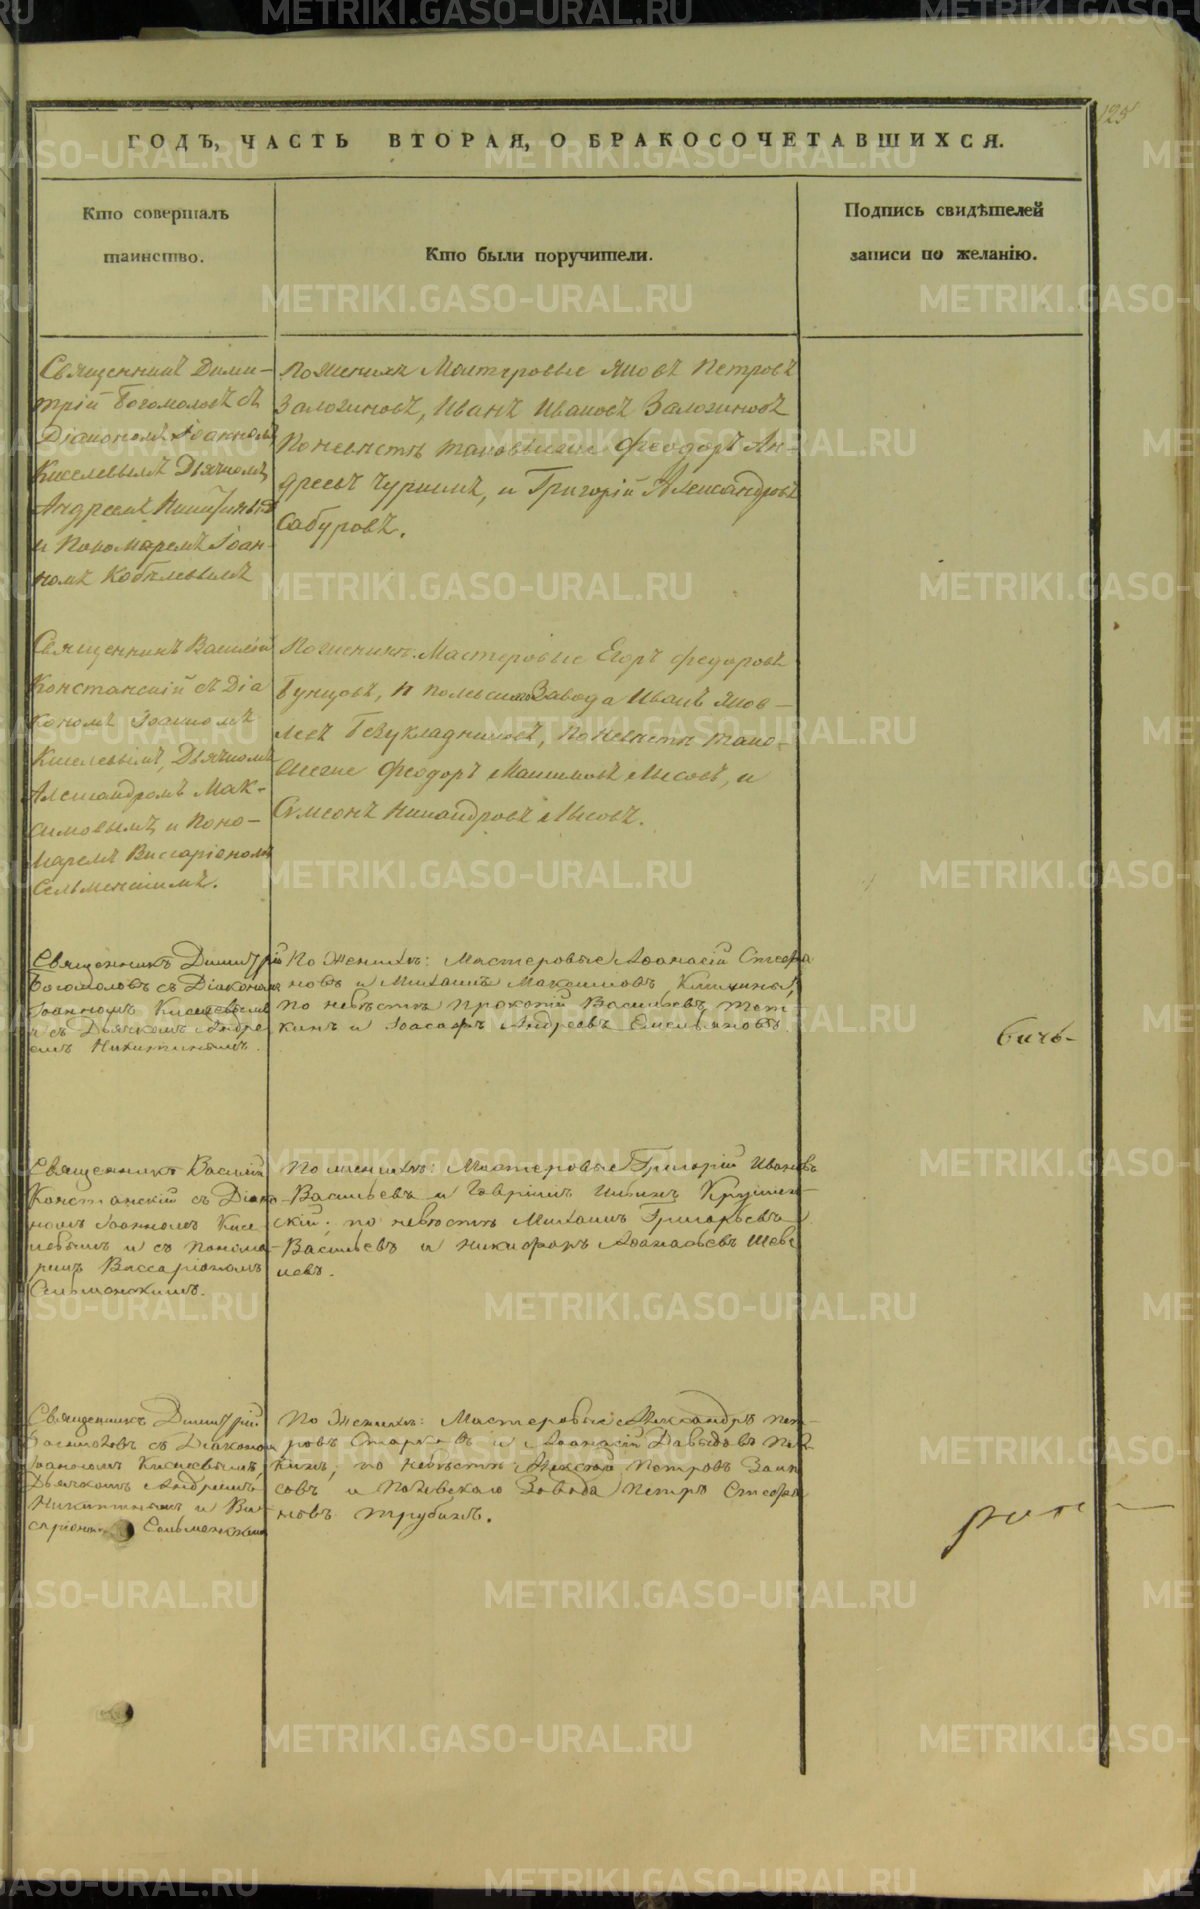 125
ГОДЪ, ЧАСТЬ ВТОРАЯ, О БРАКОСОЧЕТАВШИХСЯ.
Кто совершалъ
таинство.
Кто были поручители.
Подпись свидѣтелей
записи по желанію.
Священникъ Дими-
трій Богомоловъ съ
Діакономъ Іоанномъ
Киселевымъ Дьячкомъ
Андреемъ Никитинымъ
и Пономаремъ Іоан-
номъ Кобелевымъ
По женихѣ Мастеровые Яковъ Петровъ
Залогиновъ, Иванъ Ивановъ Залогиновъ
По невѣстѣ таковыеже Феодоръ Ан-
дреевъ Чуркинъ, и Григорій Александровъ
Сабуровъ.
Священникъ Василій
Константскій съ Діа
кономъ Іоанномъ
Киселевымъ, Дьячкомъ
Александромъ Мак-
симовымъ и Поно-
маремъ Виссаріономъ
Сельменскимъ.
По женихѣ: Мастеровые Егоръ Федоровъ
Бунцовъ, и Полевскаго Завода Иванъ Яков-
левъ Безукладниковъ, по невѣстѣ тако-
выеже Феодоръ Лысовъ, и
Симеонъ Никандровъ Лысовъ.
Священникъ Димитрій
Богомоловъ съ Діакономъ
Іоанномъ Киселевымъ
и съ Дьячкомъ Андре
емъ Никитинымъ.
По Женихѣ: Мастеровые Аѳанасій Стефа
новъ и Михаилъ Максимовъ
по невѣстѣ Прокопій Васильевъ
кинъ и Іоасафъ Андреевъ Емельяновъ.
Священникъ Василій
Константскій съ Діако
номъ Іоанномъ Кисе-
левымъ и съ Понома-
ремъ Виссаріономъ
Сельменскимъ.
По женихѣ: Мастеровые Григорій Ивановъ
Васильевъ и Гавріилъ
скій; по невѣстѣ Михаилъ Григорьевъ
Васильевъ и Никифоръ Аѳанасьевъ
Священникъ Димитрій
Богомоловъ съ Діакономъ
Іоанномъ Киселевымъ,
Дьячкомъ Андреемъ
Никитинымъ и Ви-
Сельменскимъ
По Женихѣ: Мастеровые Александръ Пет-
ровъ и Аѳанасій Давыдовъ
по невѣстѣ Алексѣй Петровъ
и Полевскаго Завода Петръ Стефа
новъ Трубинъ.